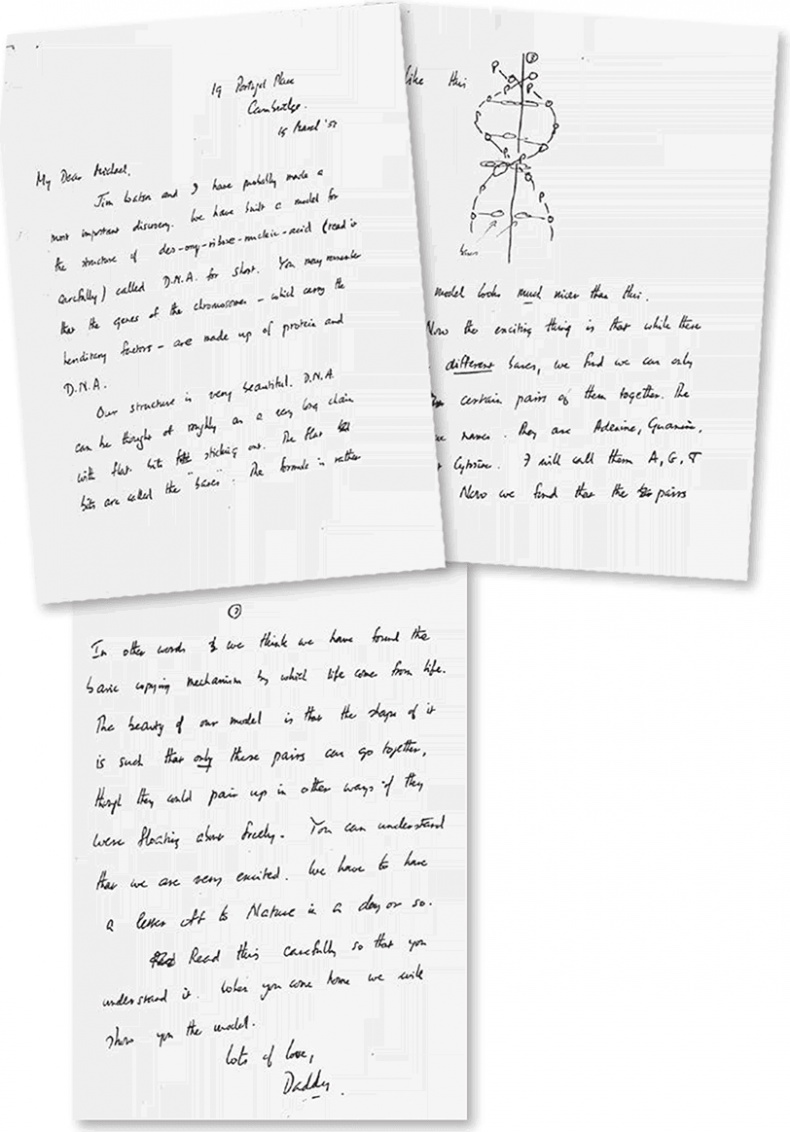 19 Portugal Place
Cambridge.
My Dear Michael,
Jim Watson and I have probably made a
most important discovery. We have built a model for
the structure of des-oxy-ribose-nucleic-acid (read it
carefully) called D.N.A. for short. You may remember
that the genes of the chromosomes – which carry the
hereditary factors – are made up of protein and
D.N.A.
Our structure is very beautiful. D.N.A.
can be thought of roughly as a very long chain
with flat bits sticking out. The flat
bits are called the "bases". The formula is rather
like this
P
P
P
P
P
bases
model looks much nicer than this.
Now the exciting thing is that while there
different bases, we find we can only
certain pairs of them together. The
names. They are Adenine, Guanine,
Cytosine. I will call them A, G, T
Now we find that the pairs
7
In other words we think we have found the
basic copying mechanism by which life comes from life.
The beauty of our model is that the shape of it
is such that only these pairs can go together,
though they could pair up in other ways if they
were floating about freely. You can understand
that we are very excited. We have to have
a letter off to Nature in a day or so.
Read this carefully so that you
understand it. When you come home we will
show you the model.
Lots of love,
Daddy